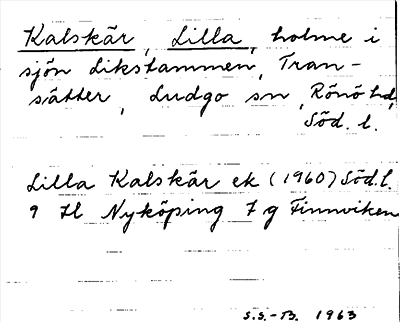 Kalskär, Lilla, holme i
sjön Likstammen, Tran-
sätter, Ludgo sn, Rönö hd,
Söd. l.
Lilla Kalskär ek (1960) Söd. l.
9 Hl Nyköping 7 g Finnviken
S.S.-B. 1963